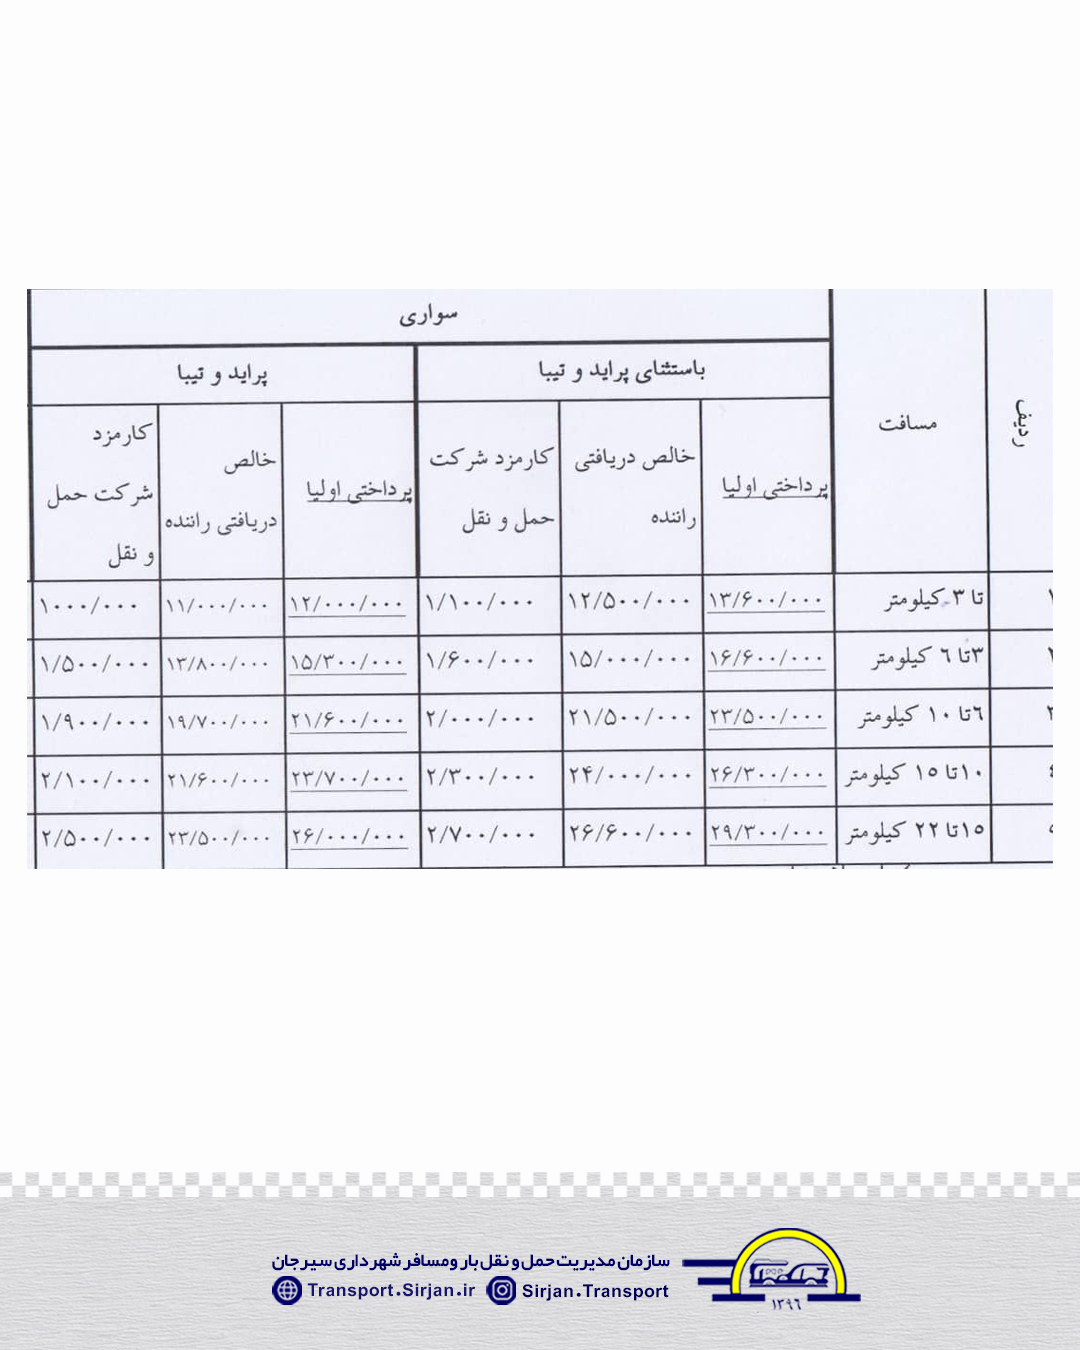 سواری
ردیف
مسافت
باستثنای پراید و تیبا
پراید و تیبا
پرداختی اولیا
خالص دریافتی
راننده
کارمزد شرکت
حمل و نقل
پرداختی اولیا
خالص
دریافتی راننده
کارمزد
شرکت حمل
و نقل
۱ تا ۳ کیلومتر ۱۳/۶۰۰/۰۰۰ ۱۲/۵۰۰/۰۰۰ ۱/۱۰۰/۰۰۰ ۱۲/۰۰۰/۰۰۰ ۱۱/۰۰۰/۰۰۰ ۱۰۰۰/۰۰۰
۲ ۳تا ٦ کیلومتر ۱۶/۶۰۰/۰۰۰ ۱۵/۰۰۰/۰۰۰ ۱/۶۰۰/۰۰۰ ۱۵/۳۰۰/۰۰۰ ۱۳/۸۰۰/۰۰۰ ۱/۵۰۰/۰۰۰
۳ ٦تا ۱۰ کیلومتر ۲۳/۵۰۰/۰۰۰ ۲۱/۵۰۰/۰۰۰ ۲/۰۰۰/۰۰۰ ۲۱/۶۰۰/۰۰۰ ۱۹/۷۰۰/۰۰۰ ۱/۹۰۰/۰۰۰
٤ ۱۰تا ۱۵ کیلومتر ۲۶/۳۰۰/۰۰۰ ۲۴/۰۰۰/۰۰۰ ۲/۳۰۰/۰۰۰ ۲۳/۷۰۰/۰۰۰ ۲۱/۶۰۰/۰۰۰ ۲/۱۰۰/۰۰۰
۵ ۱۵تا ۲۲ کیلومتر ۲۹/۳۰۰/۰۰۰ ۲۶/۶۰۰/۰۰۰ ۲/۷۰۰/۰۰۰ ۲۶/۰۰۰/۰۰۰ ۲۳/۵۰۰/۰۰۰ ۲/۵۰۰/۰۰۰
سازمان مدیریت حمل و نقل بار و مسافر شهرداری سیرجان
Transport.Sirjan.ir Sirjan.Transport
۱۳۹۶